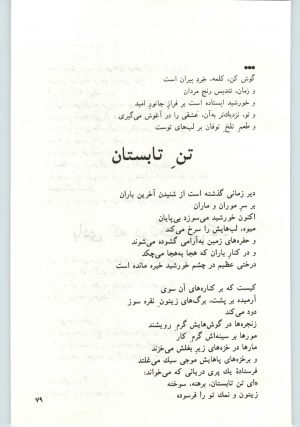 •••
گوش کن، کلمه، خِردِ پیران است
و زمان، تندیسِ رنجِ مردان
و خورشید ایستاده است بر فرازِ جانورِ امید
و تو، نزدیک‌تر به‌آن، عشقی را در آغوش می‌گیری
و طعمِ تلخِ توفان بر لب‌های توست
تنِ تابستان
دیر زمانی گذشته است از شنیدن آخرین باران
بر سر موران و ماران
اکنون خورشید می‌سوزد بی‌پایان
میوه، لب‌هایش را سرخ می‌کند
و حفره‌های زمین به‌آرامی گشوده می‌شوند
و در کنارِ باران که هجا به‌هجا می‌چکد
درختی عظیم در چشم خورشید خیره مانده است
کیست که بر کناره‌های آن سوی
آرمیده بر پشت، برگ‌های زیتونِ نقره سوز
دود می‌کند
زنجره‌ها در گوش‌هایش گرمِ رویشند
مورها بر سینه‌اش گرمِ کار
مارها در خزه‌های زیرِ بغلش می‌خزند
و برخزه‌های پاهایش موجی سبک می‌غلتد
فرستادهٔ یک پری دریائی که می‌خواند:
«ای تن تابستان، برهنه، سوخته
زیتون و نمک تو را فرسوده
۷۹